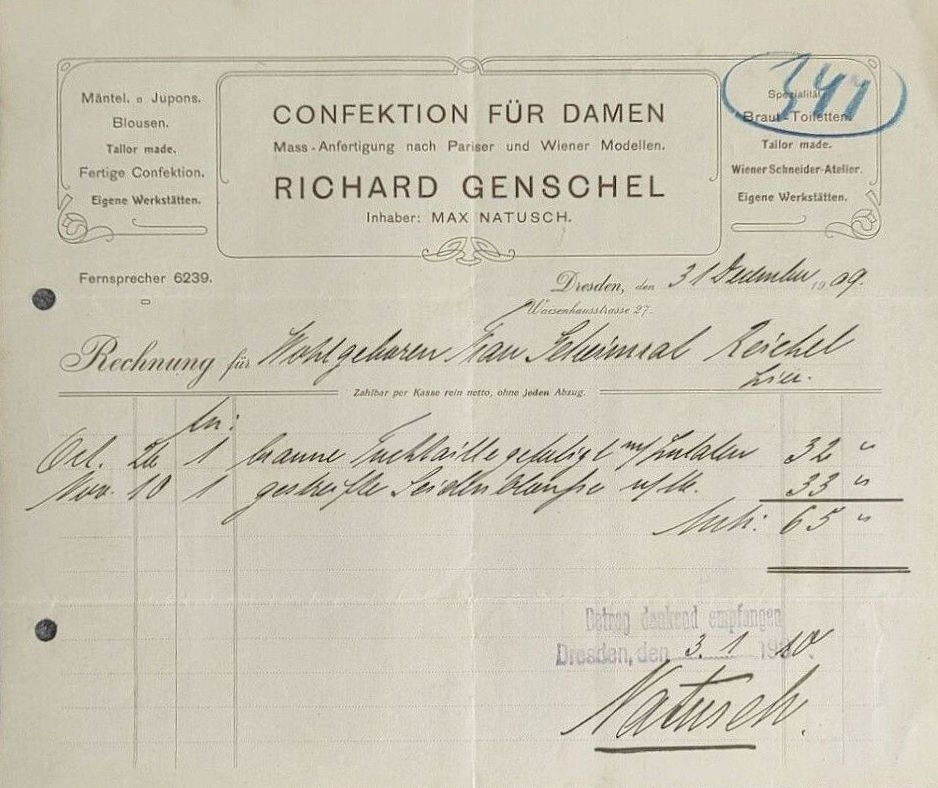 Mäntel. o Jupons.
Blousen.
Tailor made.
Fertige Confektion.
Eigene Werkstätten.
CONFEKTION FÜR DAMEN
Mass-Anfertigung nach Pariser und Wiener Modellen.
RICHARD GENSCHEL
Inhaber: MAX NATUSCH.
344
Spezialität
Braut-Toiletten.
Tailor made.
Wiener Schneider-Atelier.
Eigene Werkstätten.
Fernsprecher 6239.
Dresden, den 31 Dezember 1909.
Waisenhausstrasse 27.
Rechnung für Wohlgeboren Frau Reichel
hier.
Zahlbar per Kasse rein netto, ohne jeden Abzug.
Oct. 26 1 braune Tuchtaille gefertigt m/Zutaten 32 "
Nov. 10 1 gestreifte Seidenblouse 33 "
Mk: 65 "
Betrag dankend empfangen
Dresden, den 3. 1 1910
Natusch.